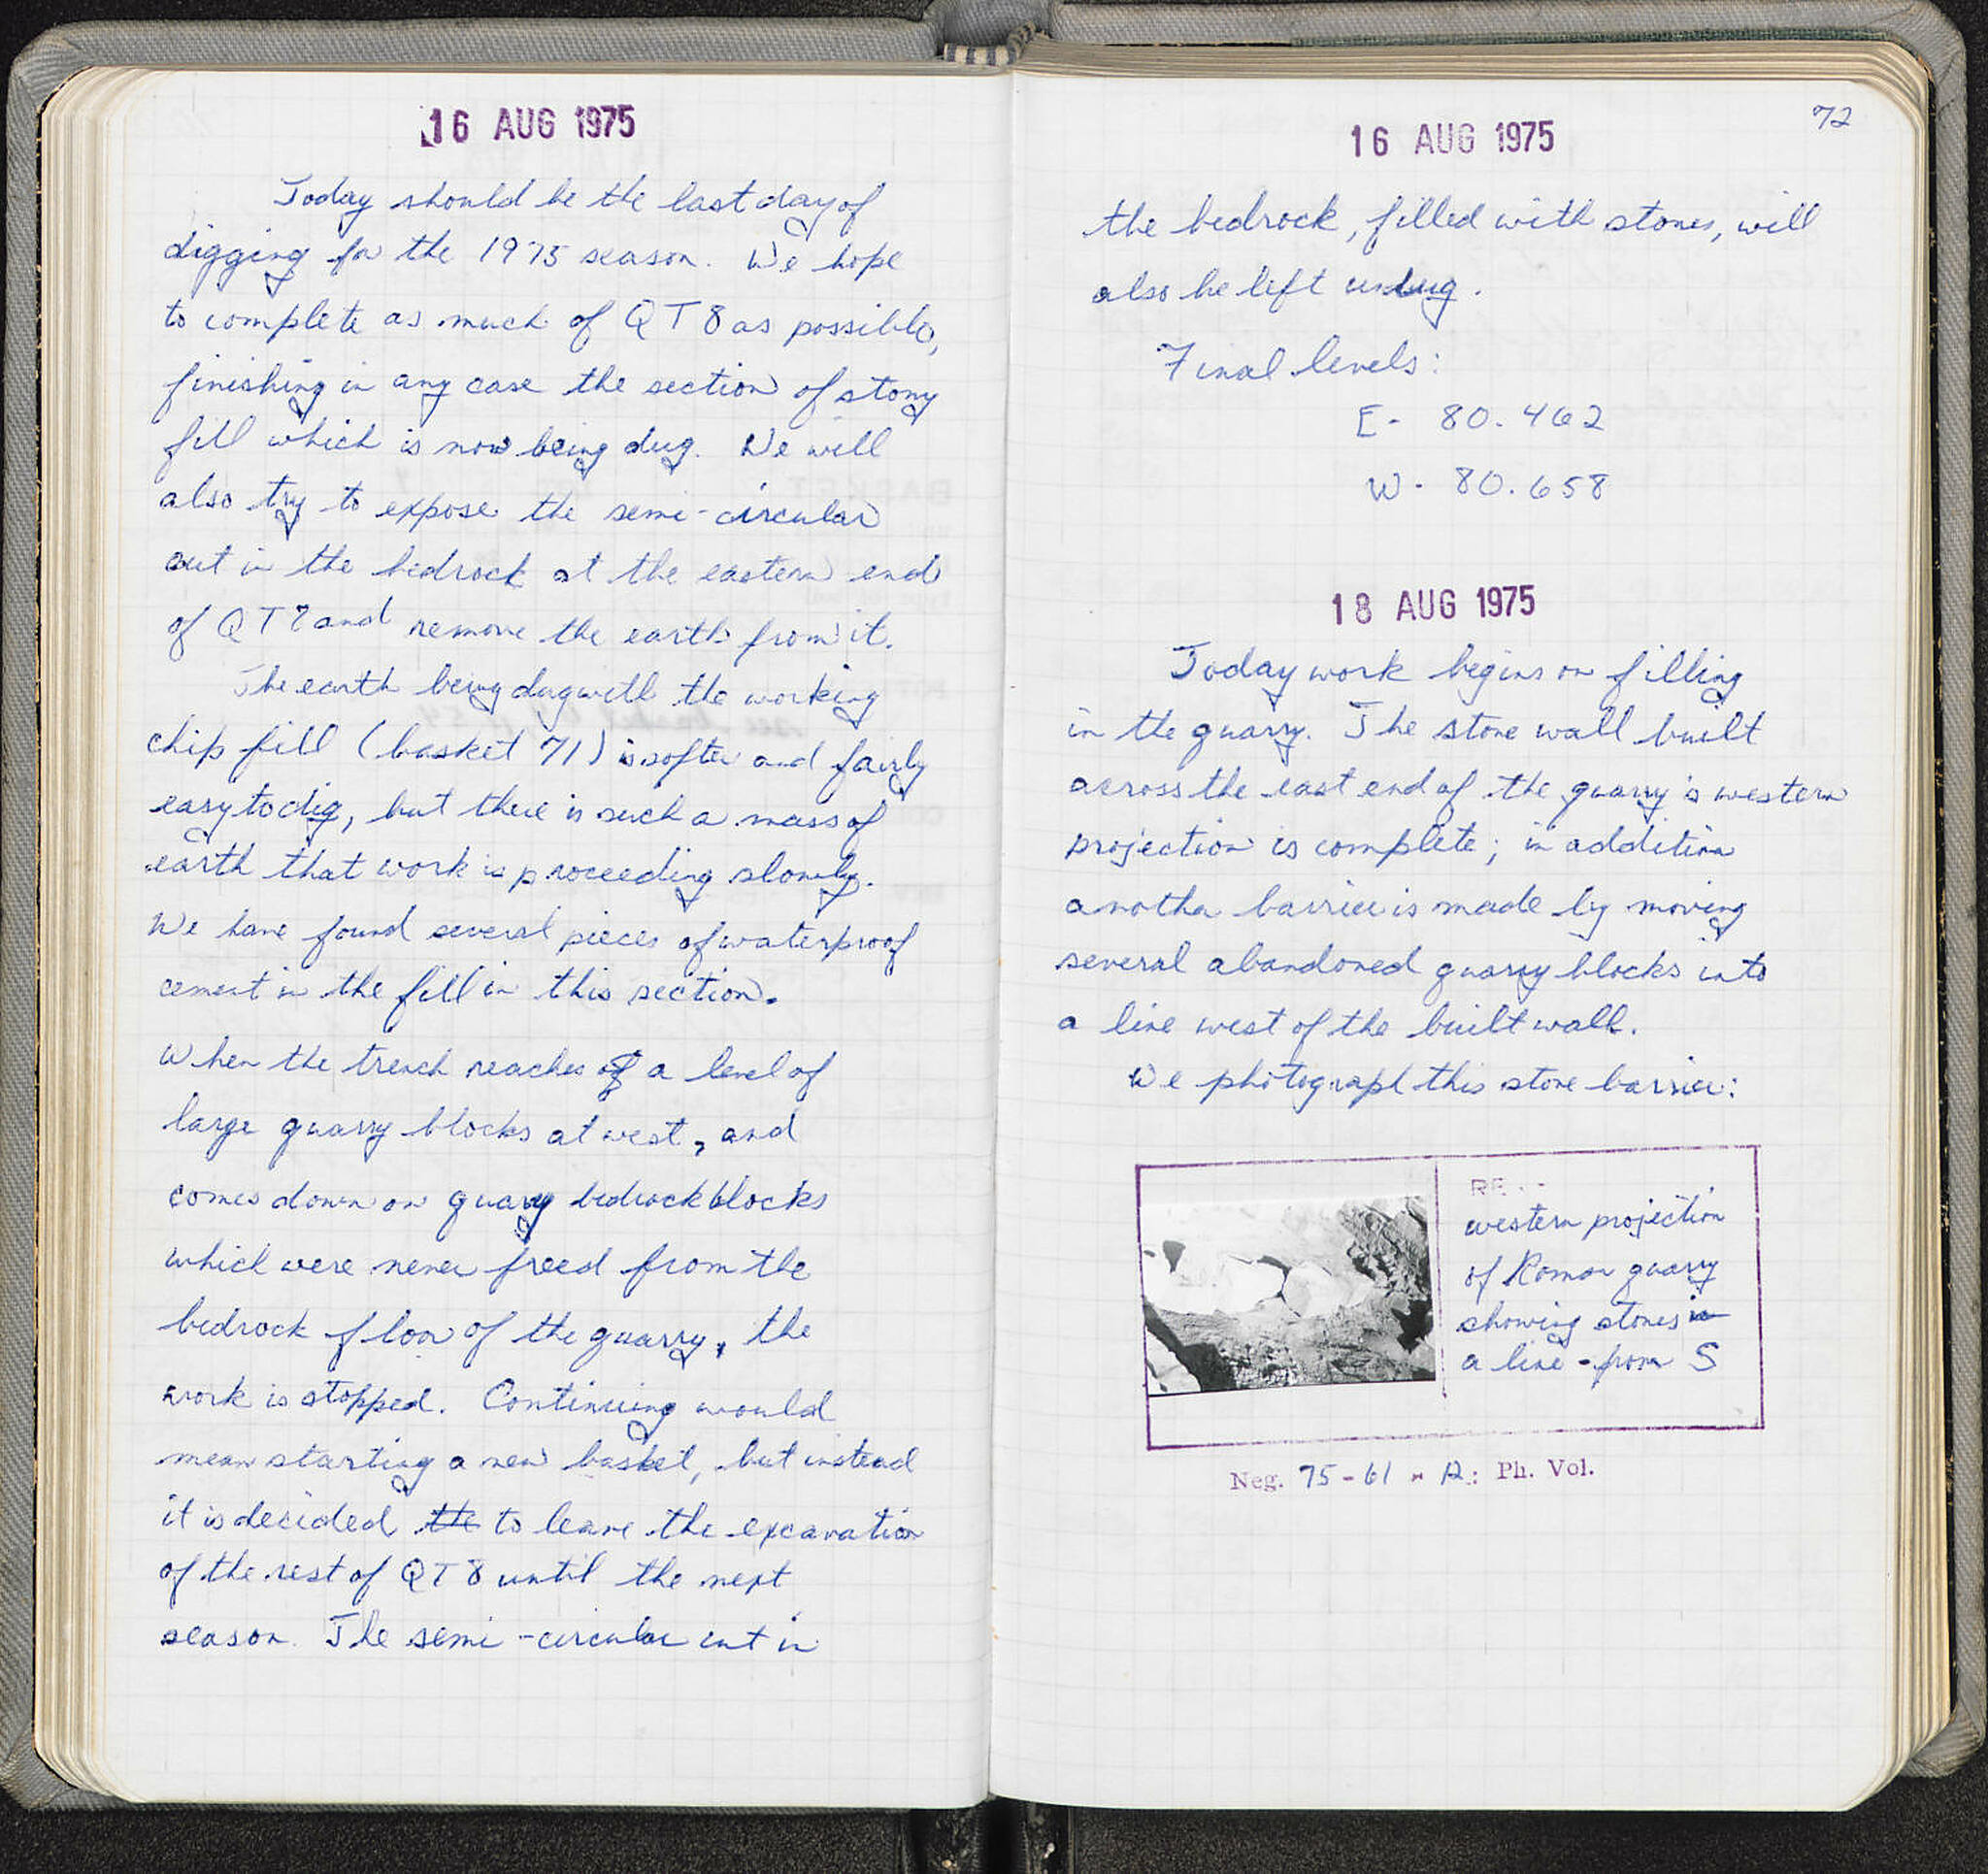 16 AUG 1975
Today should be the last day of
digging for the 1975 season. We hope
to complete as much of QT8 as possible,
finishing in any case the section of stony
fill which is now being dug. We will
also try to expose the semi-circular
cut in the bedrock at the eastern end
of QT8 and remove the earth from it.
The earth being dug with the working
chip fill (basket 71) is softer and fairly
easy to dig, but there is such a mass of
earth that work is proceeding slowly.
We have found several pieces of waterproof
cement in the fill in this section.
When the trench reaches of a level of
large quarry blocks at west, and
comes down on quarry bedrock blocks
which were never freed from the
bedrock floor of the quarry, the
work is stopped. Continuing would
mean starting a new basket, but instead
it is decided the to leave the excavation
of the rest of QT8 until the next
season. The semi-circular cut in
72
16 AUG 1975
the bedrock, filled with stones, will
also be left undug.
Final levels:
E - 80.462
W - 80.658
18 AUG 1975
Today work begins on filling
in the quarry. The stone wall built
across the east end of the quarry's western
projection is complete; in addition
another barrier is made by moving
several abandoned quarry blocks into
a line west of the built wall.
We photograph this stone barrier:
western projection
of Roman quarry
showing stones in
a line - from S
Neg. 75-61-12: Ph. Vol.